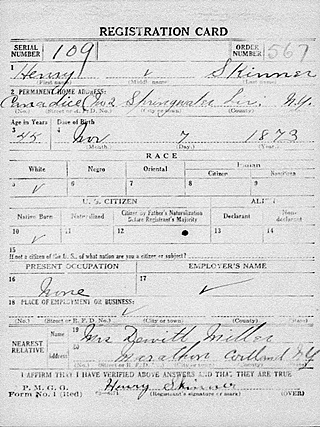 REGISTRATION CARD
SERIAL NUMBER 109 ORDER NUMBER 567
1 Henry ✓ Skinner
(First name) (Middle name) (Last name)
2 PERMANENT HOME ADDRESS:
Springwater N.Y.
(No.) (Street or R. F. D. No.) (City or town) (County) (State)
Age in Years Date of Birth
3 45 4 Nov 7 1873
(Month.) (Day.) (Year.)
RACE
White Negro Oriental Indian
Citizen Noncitizen
5 ✓ 6 7 8 9
U. S. CITIZEN ALIEN
Native Born Naturalized Citizen by Father's Naturalization Before Registrant's Majority Declarant Non-declarant
10 ✓ 11 12 13 14
15
If not a citizen of the U. S., of what nation are you a citizen or subject?
PRESENT OCCUPATION EMPLOYER'S NAME
16 None 17 ✓
18 PLACE OF EMPLOYMENT OR BUSINESS:
✓
(No.) (Street or R. F. D. No.) (City or town) (County) (State)
NEAREST RELATIVE Name 19 Mrs Dewitt Miller
Address 20 Marathon Cortland N.Y.
(No.) (Street or R. F. D. No.) (City or town) (County) (State)
I AFFIRM THAT I HAVE VERIFIED ABOVE ANSWERS AND THAT THEY ARE TRUE
P. M. G. O.
Form No. 1 (Red) Henry Skinner
(Registrant's signature or mark) (OVER)